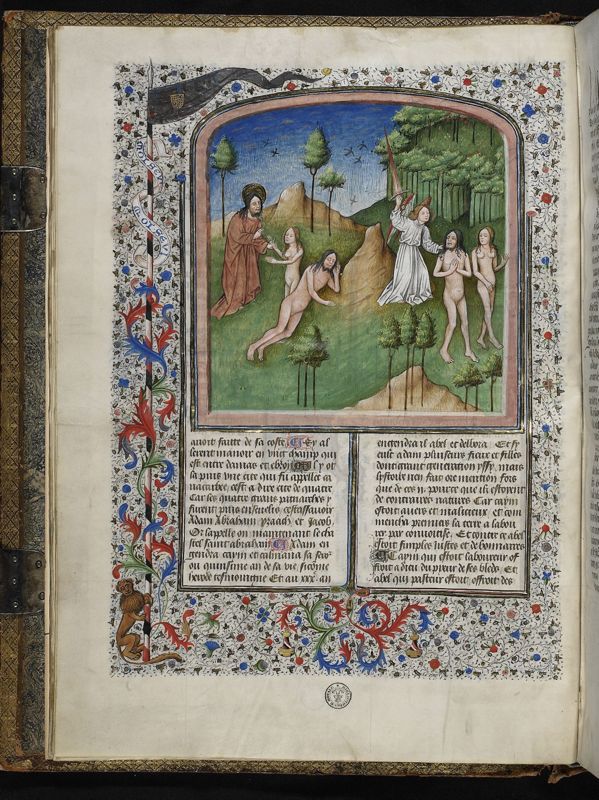 auoit faitte de sa coste. Et sy al
lerent manoir en vng champ qui
est entre damas et ebron
la puis vne cite qui fu appellee
cest a dire cite de quatre
Car les quatre grans patriarches y
furent puis enseuelis cestassauoir
Adam Abraham ysaach et Jacob.
Or lappelle on maintenant le cha
stel saint abraham Adam en
gendra cayn et calmana sa seur
ou quinsime an de sa vie sicome
tesmoingne Et au xxx. an
engendra il abel et delbora. Et sy
eult adam pluiseurs fieux et filles
dont grant generation yssy. mais
lystoire nen fait ore mention fors
que de ces ij. pource que ilz estoyent
de contraires natures Car cayn
estoit auers et malicieux et com
mencha premiers la terre a labou
rer par conuoitise. Et contre ce abel
estoit simples iustes et debonnaires
Cayn qui estoit laboureur of
froit a dieu du pieur de ses bledz. Et
abel qui pasteur estoit offroit des